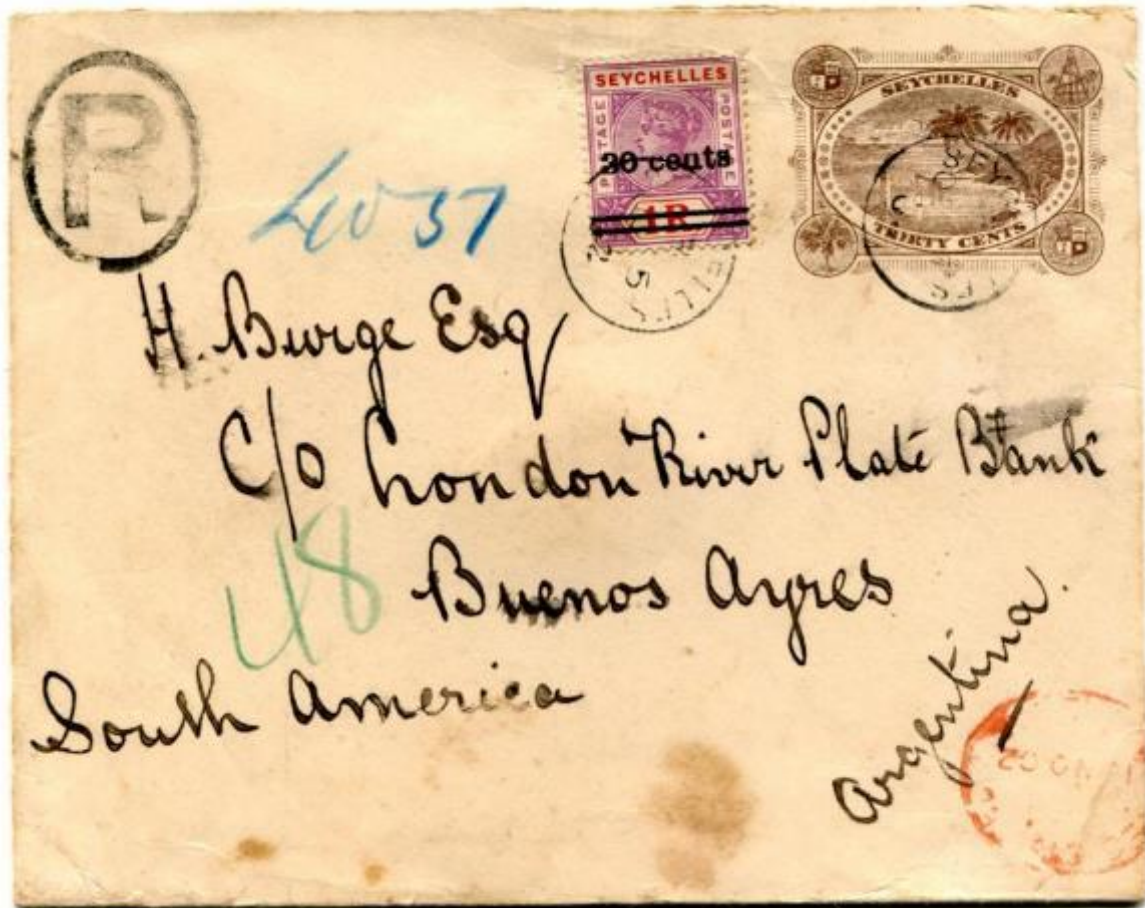 R
SEYCHELLES
POSTAGE
POSTAGE
30 cents
1R.
SEYCHELLES
THIRTY CENTS
4037
H. Burge Esq
C/o London River Plate Bank
48
Buenos Ayres
South America
Argentina